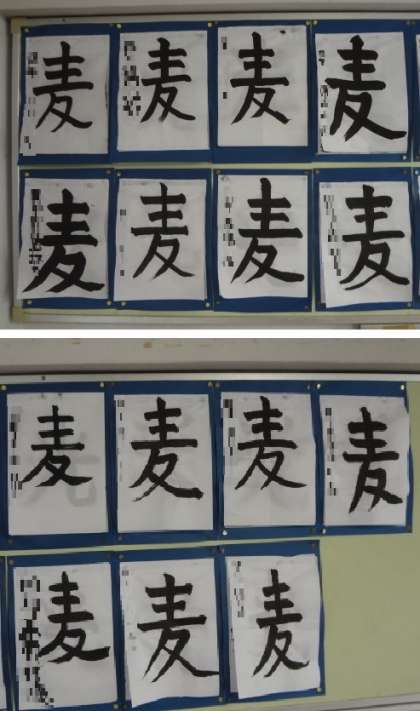 麦 麦 麦 麦
麦 麦 麦 麦
麦 麦 麦 麦
麦 麦 麦